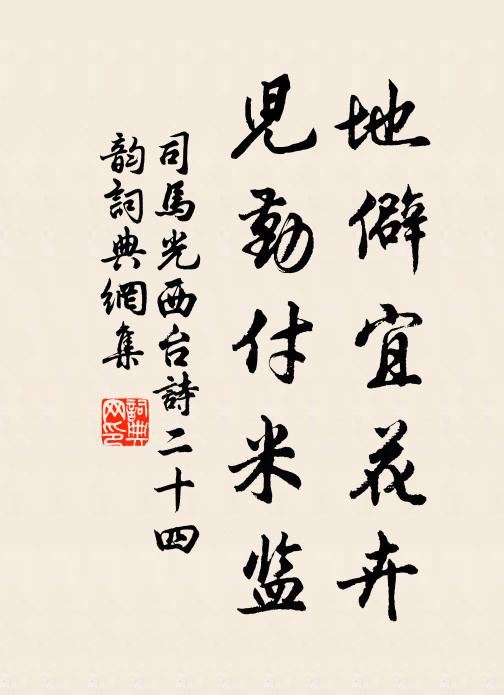 地僻宜花卉
児勤付米监
司馬光西台詩二十四
韵詞典網集
詞典网印